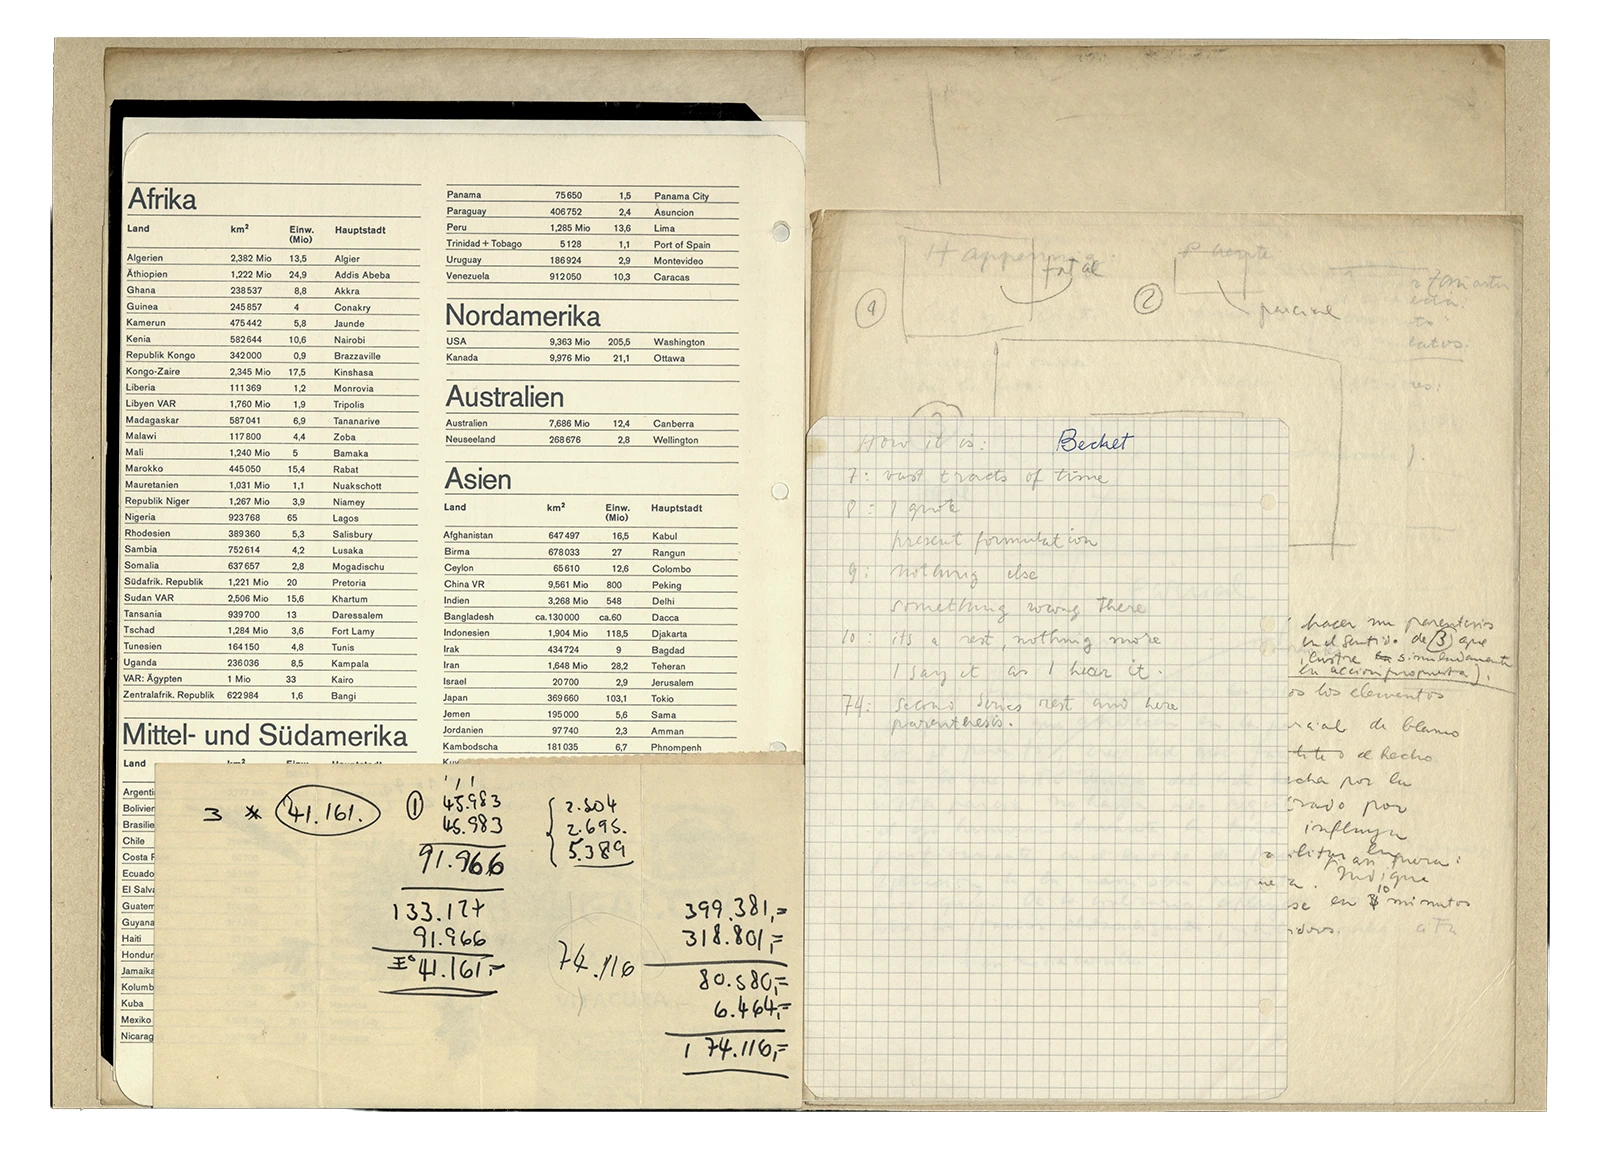 Afrika
Land km² Einw. (Mio) Hauptstadt
Algerien 2,382 Mio 13,5 Algier
Äthiopien 1,222 Mio 24,9 Addis Abeba
Ghana 238 537 8,8 Akkra
Guinea 245 857 4 Conakry
Kamerun 475 442 5,8 Jaunde
Kenia 582 644 10,6 Nairobi
Republik Kongo 342 000 0,9 Brazzaville
Kongo-Zaire 2,345 Mio 17,5 Kinshasa
Liberia 111 369 1,2 Monrovia
Libyen VAR 1,760 Mio 1,9 Tripolis
Madagaskar 587 041 6,9 Tananarive
Malawi 117 800 4,4 Zoba
Mali 1,240 Mio 5 Bamaka
Marokko 445 050 15,4 Rabat
Mauretanien 1,031 Mio 1,1 Nuakschott
Republik Niger 1,267 Mio 3,9 Niamey
Nigeria 923 768 65 Lagos
Rhodesien 389 360 5,3 Salisbury
Sambia 752 614 4,2 Lusaka
Somalia 637 657 2,8 Mogadischu
Südafrik. Republik 1,221 Mio 20 Pretoria
Sudan VAR 2,506 Mio 15,6 Khartum
Tansania 939 700 13 Daressalem
Tschad 1,284 Mio 3,6 Fort Lamy
Tunesien 164 150 4,8 Tunis
Uganda 236 036 8,5 Kampala
VAR: Ägypten 1 Mio 33 Kairo
Zentralafrik. Republik 622 984 1,6 Bangi
Mittel- und Südamerika
Land km² Einw. Hauptstadt
Argenti
Bolivien
Brasilie
Chile
Costa F
Ecuado
El Salva
Guatem
Guyana
Haiti
Hondur
Jamaika
Kolumb
Kuba
Mexiko
Nicarag
Panama 75 650 1,5 Panama City
Paraguay 406 752 2,4 Asuncion
Peru 1,285 Mio 13,6 Lima
Trinidad + Tobago 5 128 1,1 Port of Spain
Uruguay 186 924 2,9 Montevideo
Venezuela 912 050 10,3 Caracas
Nordamerika
USA 9,363 Mio 205,5 Washington
Kanada 9,976 Mio 21,1 Ottawa
Australien
Australien 7,686 Mio 12,4 Canberra
Neuseeland 268 676 2,8 Wellington
Asien
Land km² Einw. (Mio) Hauptstadt
Afghanistan 647 497 16,5 Kabul
Birma 678 033 27 Rangun
Ceylon 65 610 12,6 Colombo
China VR 9,561 Mio 800 Peking
Indien 3,268 Mio 548 Delhi
Bangladesh ca. 130 000 ca. 60 Dacca
Indonesien 1,904 Mio 118,5 Djakarta
Irak 434 724 9 Bagdad
Iran 1,648 Mio 28,2 Teheran
Israel 20 700 2,9 Jerusalem
Japan 369 660 103,1 Tokio
Jemen 195 000 5,6 Sama
Jordanien 97 740 2,3 Amman
Kambodscha 181 035 6,7 Phnompenh
3 * 41.161.
① 45.983
45.983
91.966
133.127
91.966
41.161,-
2.504
2.695.
5.389
74.116
399.381,=
318.801,=
80.580,=
6.464,=
1 74.116,=
Happening:
total
②
parcial
How it is: Becket
7: vast tracts of time
8: I quote
present formulation
9: nothing else
something wrong there
10: its a rest, nothing more
I say it as I hear it.
74: second series rest and here
parenthesis.
hacer un parentesis
en el sentido de (3) que
simuladamente
en accion propuesta).
os los elementos
de blanco
el hecho
cha por la
por
influya
Indique
se en 10 minutos